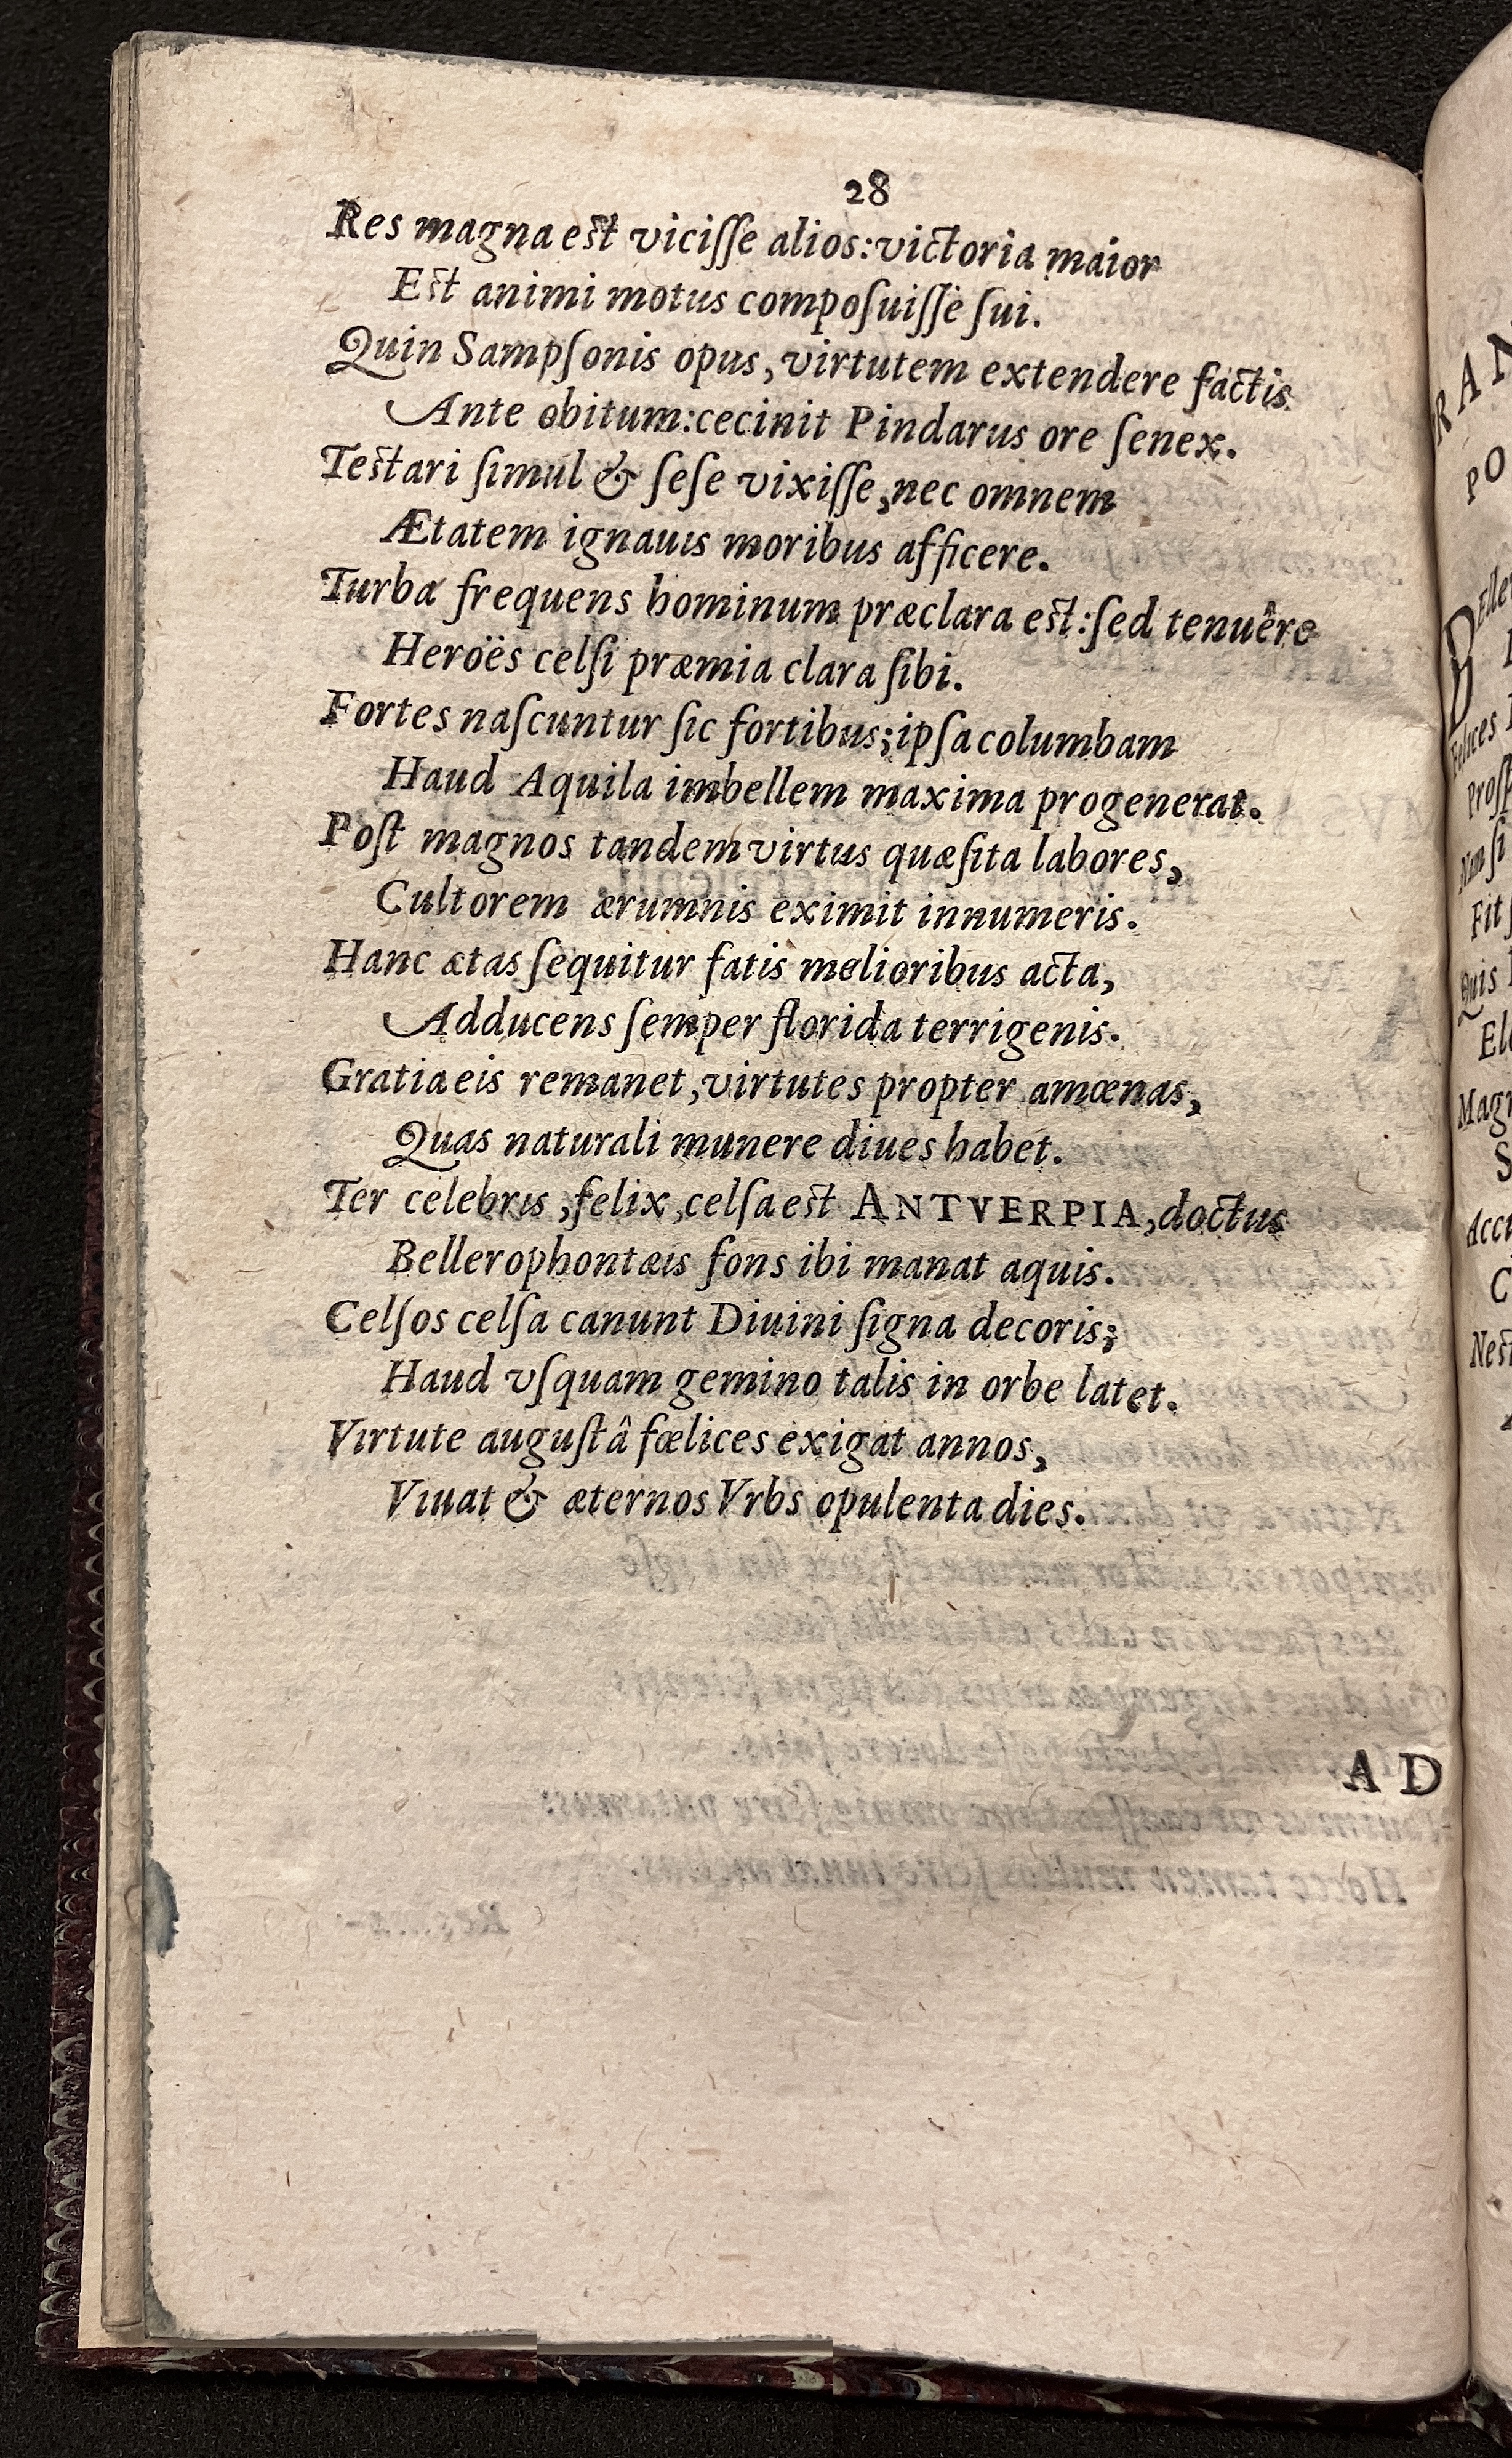 28
Res magna est viciſſe alios: victoria maior
Est animi motus compoſuiſſe ſui.
Quin Sampſonis opus, virtutem extendere factis
Ante obitum: cecinit Pindarus ore ſenex.
Testari ſimul & ſeſe vixiſſe, nec omnem
Ætatem ignauis moribus afficere.
Turba frequens hominum præclara est: ſed tenuêre
Heroës celſi præmia clara ſibi.
Fortes naſcuntur ſic fortibus; ipſa columbam
Haud Aquila imbellem maxima progenerat.
Poſt magnos tandem virtus quæſita labores,
Cultorem ærumnis eximit innumeris.
Hanc ætas ſequitur fatis melioribus acta,
Adducens ſemper florida terrigenis.
Gratia eis remanet, virtutes propter amœnas,
Quas naturali munere diues habet.
Ter celebris, felix, celſa est ANTVERPIA, doctus
Bellerophontæis fons ibi manat aquis.
Celſos celſa canunt Diuini ſigna decoris;
Haud vſquam gemino talis in orbe latet.
Virtute auguſtâ fœlices exigat annos,
Viuat & æternos Vrbs opulenta dies.
AD
RAN
PO
Fit
Quis
Magn